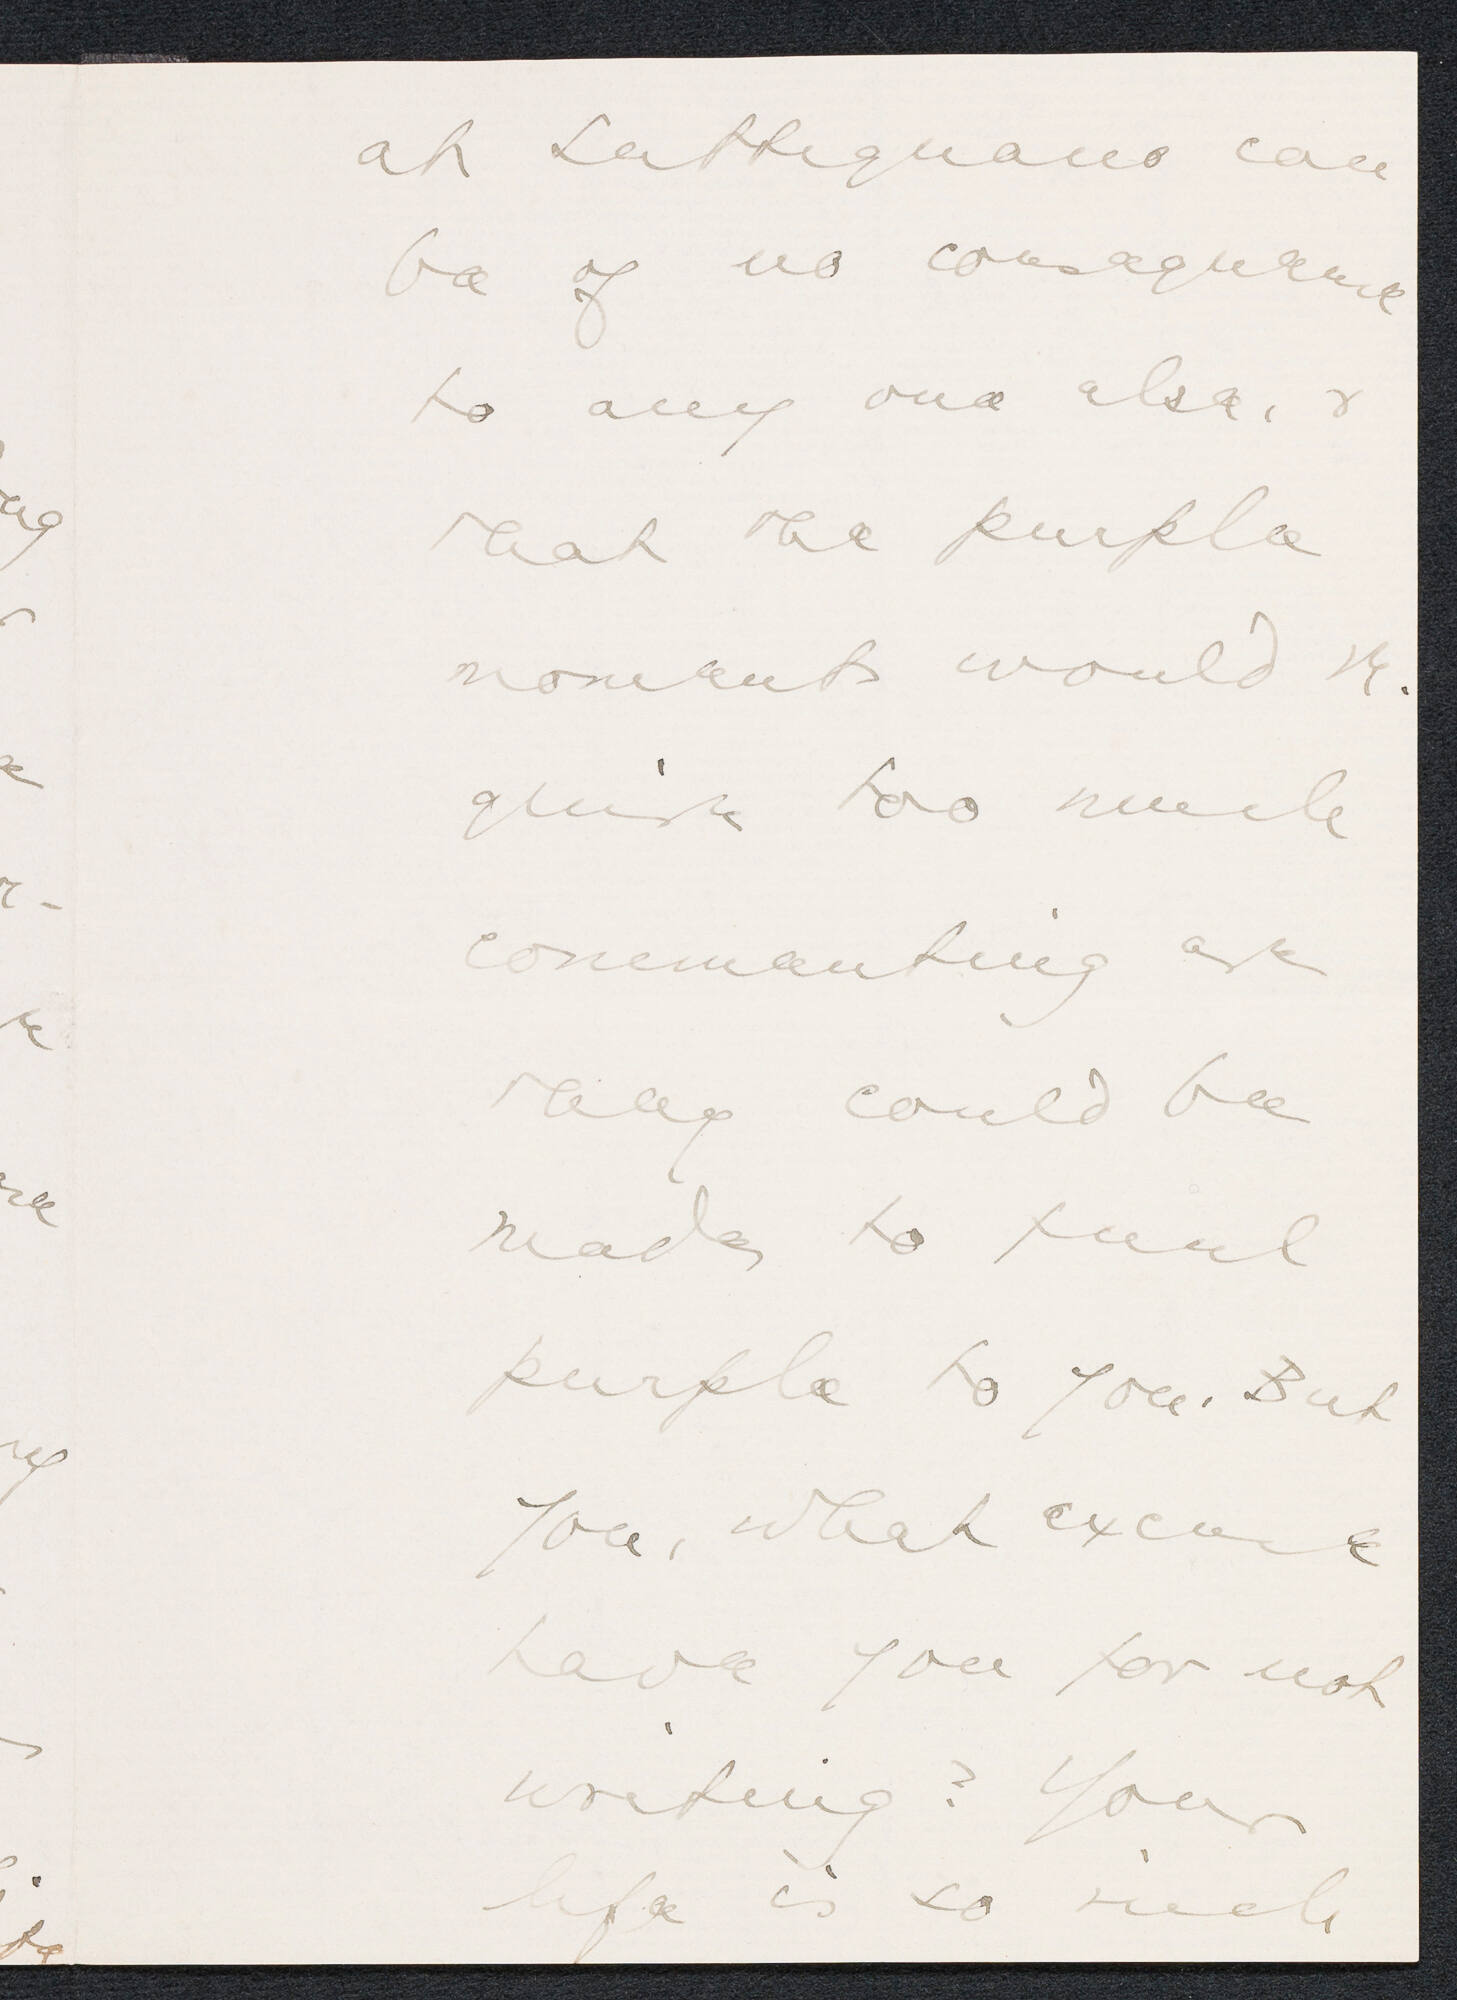 at Settignano can
be of no consequence
to any one else, &
that the purple
moments would re.
quire too much
commenting ere
they could be
made to
purple to you. But
you, what excuse
have you for not
writing? Your
life is so rich,